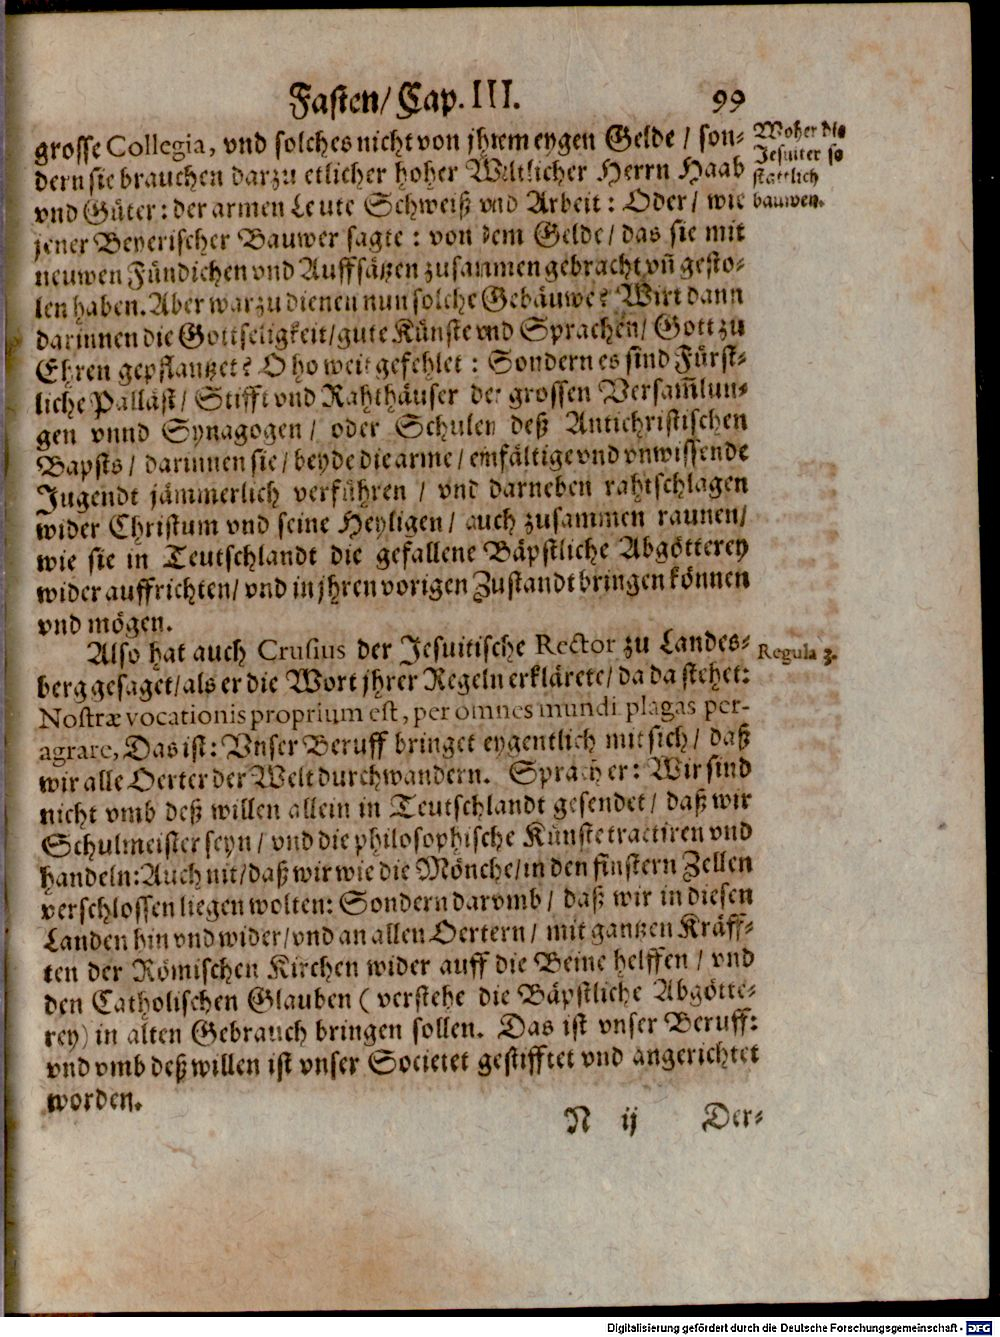 Fasten/ Cap. III. 99
grosse Collegia, vnd solches nicht von jhrem eygen Gelde / son-
dern sie brauchen darzu etlicher hoher Weltlicher Herrn Haab
vnd Güter: der armen Leute Schweiß vnd Arbeit: Oder/ wie
jener Beyerischer Bauwer sagte: von dem Gelde/ das sie mit
neuwen Fündichen vnd Auffsätzen zusammen gebracht vñ gesto-
len haben. Aber warzu dienen nun solche Gebäuwe? Wirt dann
darinnen die Gottseligkeit/ gute Künste vnd Sprachen/ Gott zu
Ehren gepflantzet? O ho weit gefehlet: Sondern es sind Fürst-
liche Palläst/ Stifft vnd Rahthäuser der grossen Versam̃lun-
gen vnnd Synagogen/ oder Schulen deß Antichristischen
Bapsts/ darinnen sie/ beyde die arme/ einfältige vnd vnwissende
Jugendt jämmerlich verführen / vnd darneben rahtschlagen
wider Christum vnd seine Heyligen/ auch zusammen raunen/
wie sie in Teutschlandt die gefallene Bäpstliche Abgötterey
wider auffrichten/ vnd in jhren vorigen Zustandt bringen können
vnd mögen.
Woher die
Jesuiter so
stattlich
bauwen.
Also hat auch Crusius der Jesuitische Rector zu Landes-
berg gesaget/ als er die Wort jhrer Regeln erklärete/ da da stehet:
Nostræ vocationis proprium est, per omnes mundi plagas per-
agrare, Das ist: Vnser Beruff bringet eygentlich mit sich/ daß
wir alle Oerter der Welt durchwandern. Sprach er: Wir sind
nicht vmb deß willen allein in Teutschlandt gesendet/ daß wir
Schulmeister seyn/ vnd die philosophische Künste tractiren vnd
handeln: Auch nit/ daß wir wie die Mönche/ in den finstern Zellen
verschlossen liegen wolten: Sondern darvmb/ daß wir in diesen
Landen hin vnd wider/ vnd an allen Oertern/ mit gantzen Kräff-
ten der Römischen Kirchen wider auff die Beine helffen/ vnd
den Catholischen Glauben (verstehe die Bäpstliche Abgötte-
rey) in alten Gebrauch bringen sollen. Das ist vnser Beruff:
vnd vmb deß willen ist vnser Societet gestifftet vnd angerichtet
worden.
Regula 3.
N ij Der-
Digitalisierung gefördert durch die Deutsche Forschungsgemeinschaft - DFG